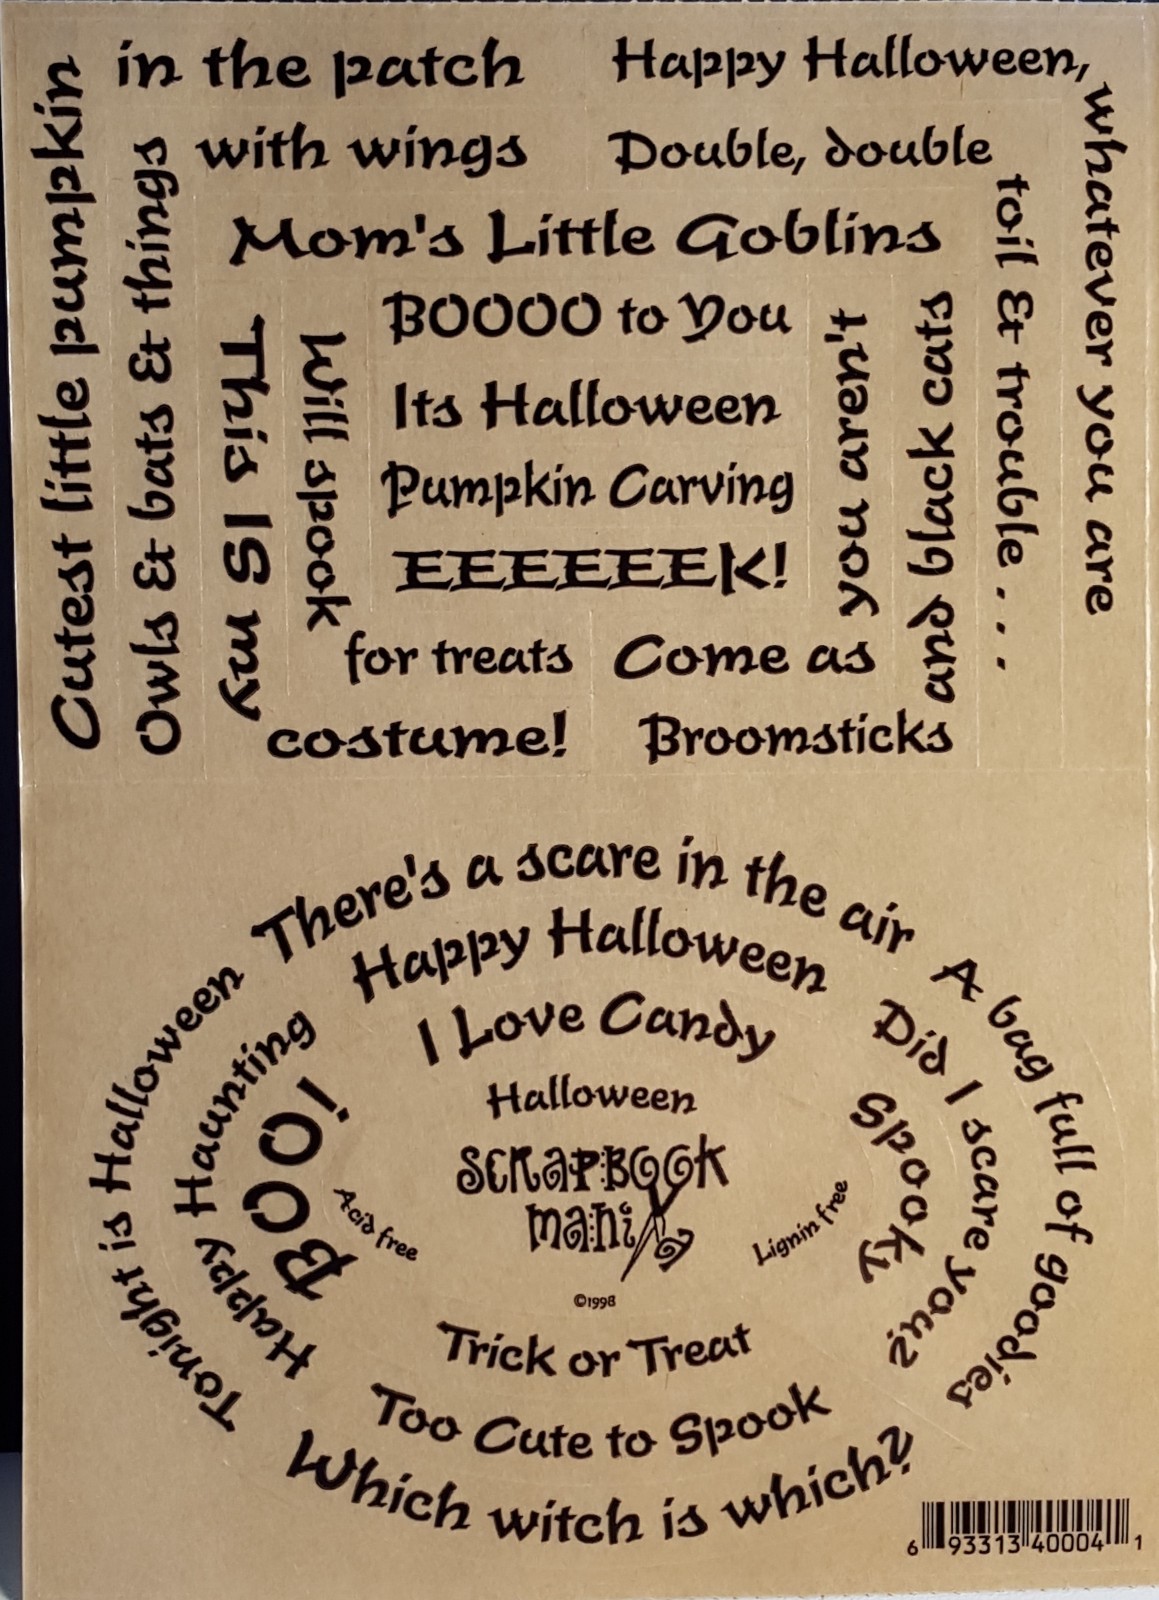 Cutest little pumpkin
in the patch
Happy Halloween,
whatever you are
Owls & bats & things
with wings
Double, double
toil & trouble . . .
Mom's Little Goblins
This IS my
costume!
Will spook
for treats
BOOOO to You
Its Halloween
Pumpkin Carving
EEEEEEEK!
Come as
you aren't
Broomsticks
and black cats
There's a scare in the air
Tonight is Halloween
A bag full of goodies
Which witch is which?
Happy Halloween
Happy Haunting
Did I scare you?
Too Cute to Spook
I Love Candy
BOO!
Spooky
Trick or Treat
Halloween
SCRAPBOOK
mania
Acid free
Lignin free
©1998
6 93313 40004 1